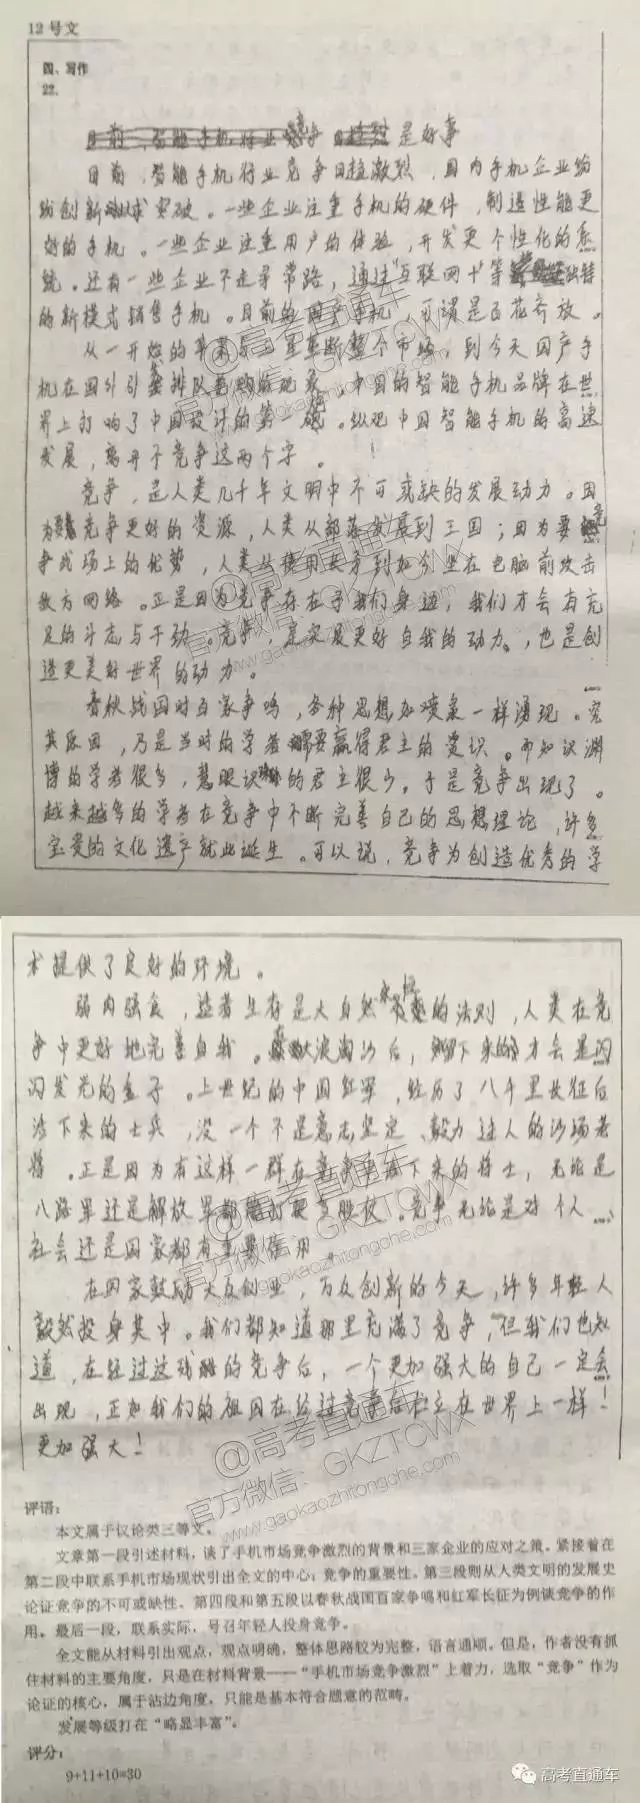 12号文
四、写作
22.
是好事
目前,智能手机行业竞争日趋激烈,国内手机企业纷
纷创新以求突破。一些企业注重手机的硬件,制造性能更
好的手机。一些企业注重用户的体验,开发更个性化的系
统。还有一些企业不走寻常路,通过“互联网+”等独特
的新模式销售手机。目前的国产手机,可谓是百花齐放。
从一开始的苹果与三星垄断整个市场,到今天国产手
机在国外引排队购的现象,中国的智能手机品牌在世
界上打响了中国设计的第一炮。纵观中国智能手机的高速
发展,离开不竞争这两个字。
竞争,是人类几千年文明中不可或缺的发展动力。因
为要竞争更好的资源,人类从部落发展到王国;因为要竞
争战场上的优势,人类从使用长矛到如今坐在电脑前攻击
敌方网络。正是因为竞争存在于我们身边,我们才会有充
足的斗志与干劲。竞争,是实现更好自我的动力,也是创
造更美好世界的动力。
春秋战国时百家争鸣,各种思想如喷泉一样涌现。究
其原因,乃是当时的学者需要赢得君主的赏识。而知识渊
博的学者很多,慧眼识的君主很少。于是竞争出现了。
越来越多的学者在竞争中不断完善自己的思想理论,许多
宝贵的文化遗产就此诞生。可以说,竞争为创造优秀的学
术提供了良好的环境。
弱肉强食,适者生存是大自然永恒的法则,人类在竞
争中更好地完善自我。大浪淘沙后,剩下来的才会是闪
闪发光的金子。上世纪的中国红军,经历了八千里长征后
活下来的士兵,没一个不是意志坚定、毅力过人的沙场老
将。正是因为有这样一群在竞争中活下来的将士,无论是
八路军还是解放军都能打硬胜仗。竞争无论是对个人、
社会还是国家都有重要作用。
在国家鼓励大众创业,万众创新的今天,许多年轻人
毅然投身其中。我们都知道那里充满了竞争,但我们也知
道,在经过这残酷的竞争后,一个更加强大的自己一定会
出现,正如我们的祖国在经过竞争后屹立在世界上一样!
更加强大!
评语:
本文属于议论类三等文。
文章第一段引述材料,谈了手机市场竞争激烈的背景和三家企业的应对之策。紧接着在
第二段中联系手机市场现状引出全文的中心:竞争的重要性。第三段则从人类文明的发展史
论证竞争的不可或缺性。第四段和第五段以春秋战国百家争鸣和红军长征为例谈竞争的作
用。最后一段,联系实际,号召年轻人投身竞争。
全文能从材料引出观点,观点明确,整体思路较为完整,语言通顺。但是,作者没有抓
住材料的主要角度,只是在材料背景——“手机市场竞争激烈”上着力,选取“竞争”作为
论证的核心,属于沾边角度,只能是基本符合题意的范畴。
发展等级打在“略显丰富”。
评分:
9+11+10=30
@高考直通车
官方微信:GKZTCWX
www.gaokaozhitongche.com
高考直通车